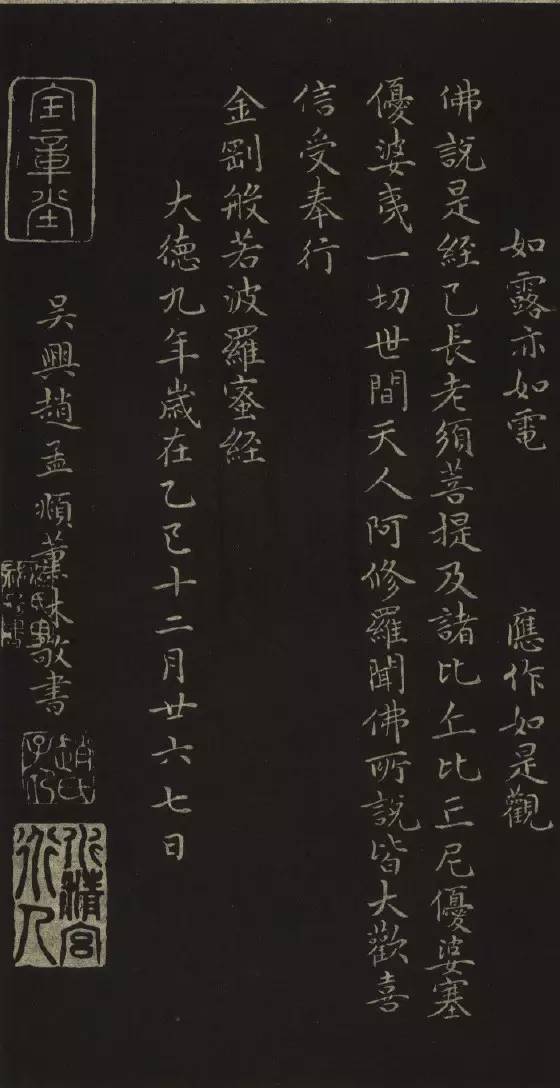 如露亦如電　應作如是觀
佛說是経已長老須菩提及諸比丘比丘尼優婆塞
優婆夷一切世間天人阿修羅聞佛所說皆大歡喜
信受奉行
金剛般若波羅蜜経
大德九年歲在乙巳十二月廿六七日
吳興趙孟頫薰沐敬書
趙氏子昂
水精宮道人